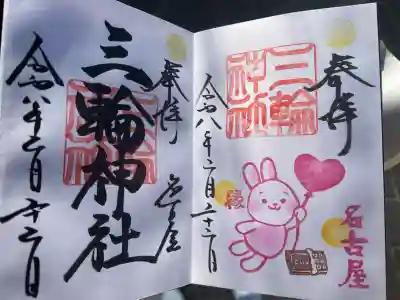 奉拝
三輪神社
名古屋
縁
令和八年二月二十二日
奉拝
名古屋
三輪神社
令和八年二月二十二日